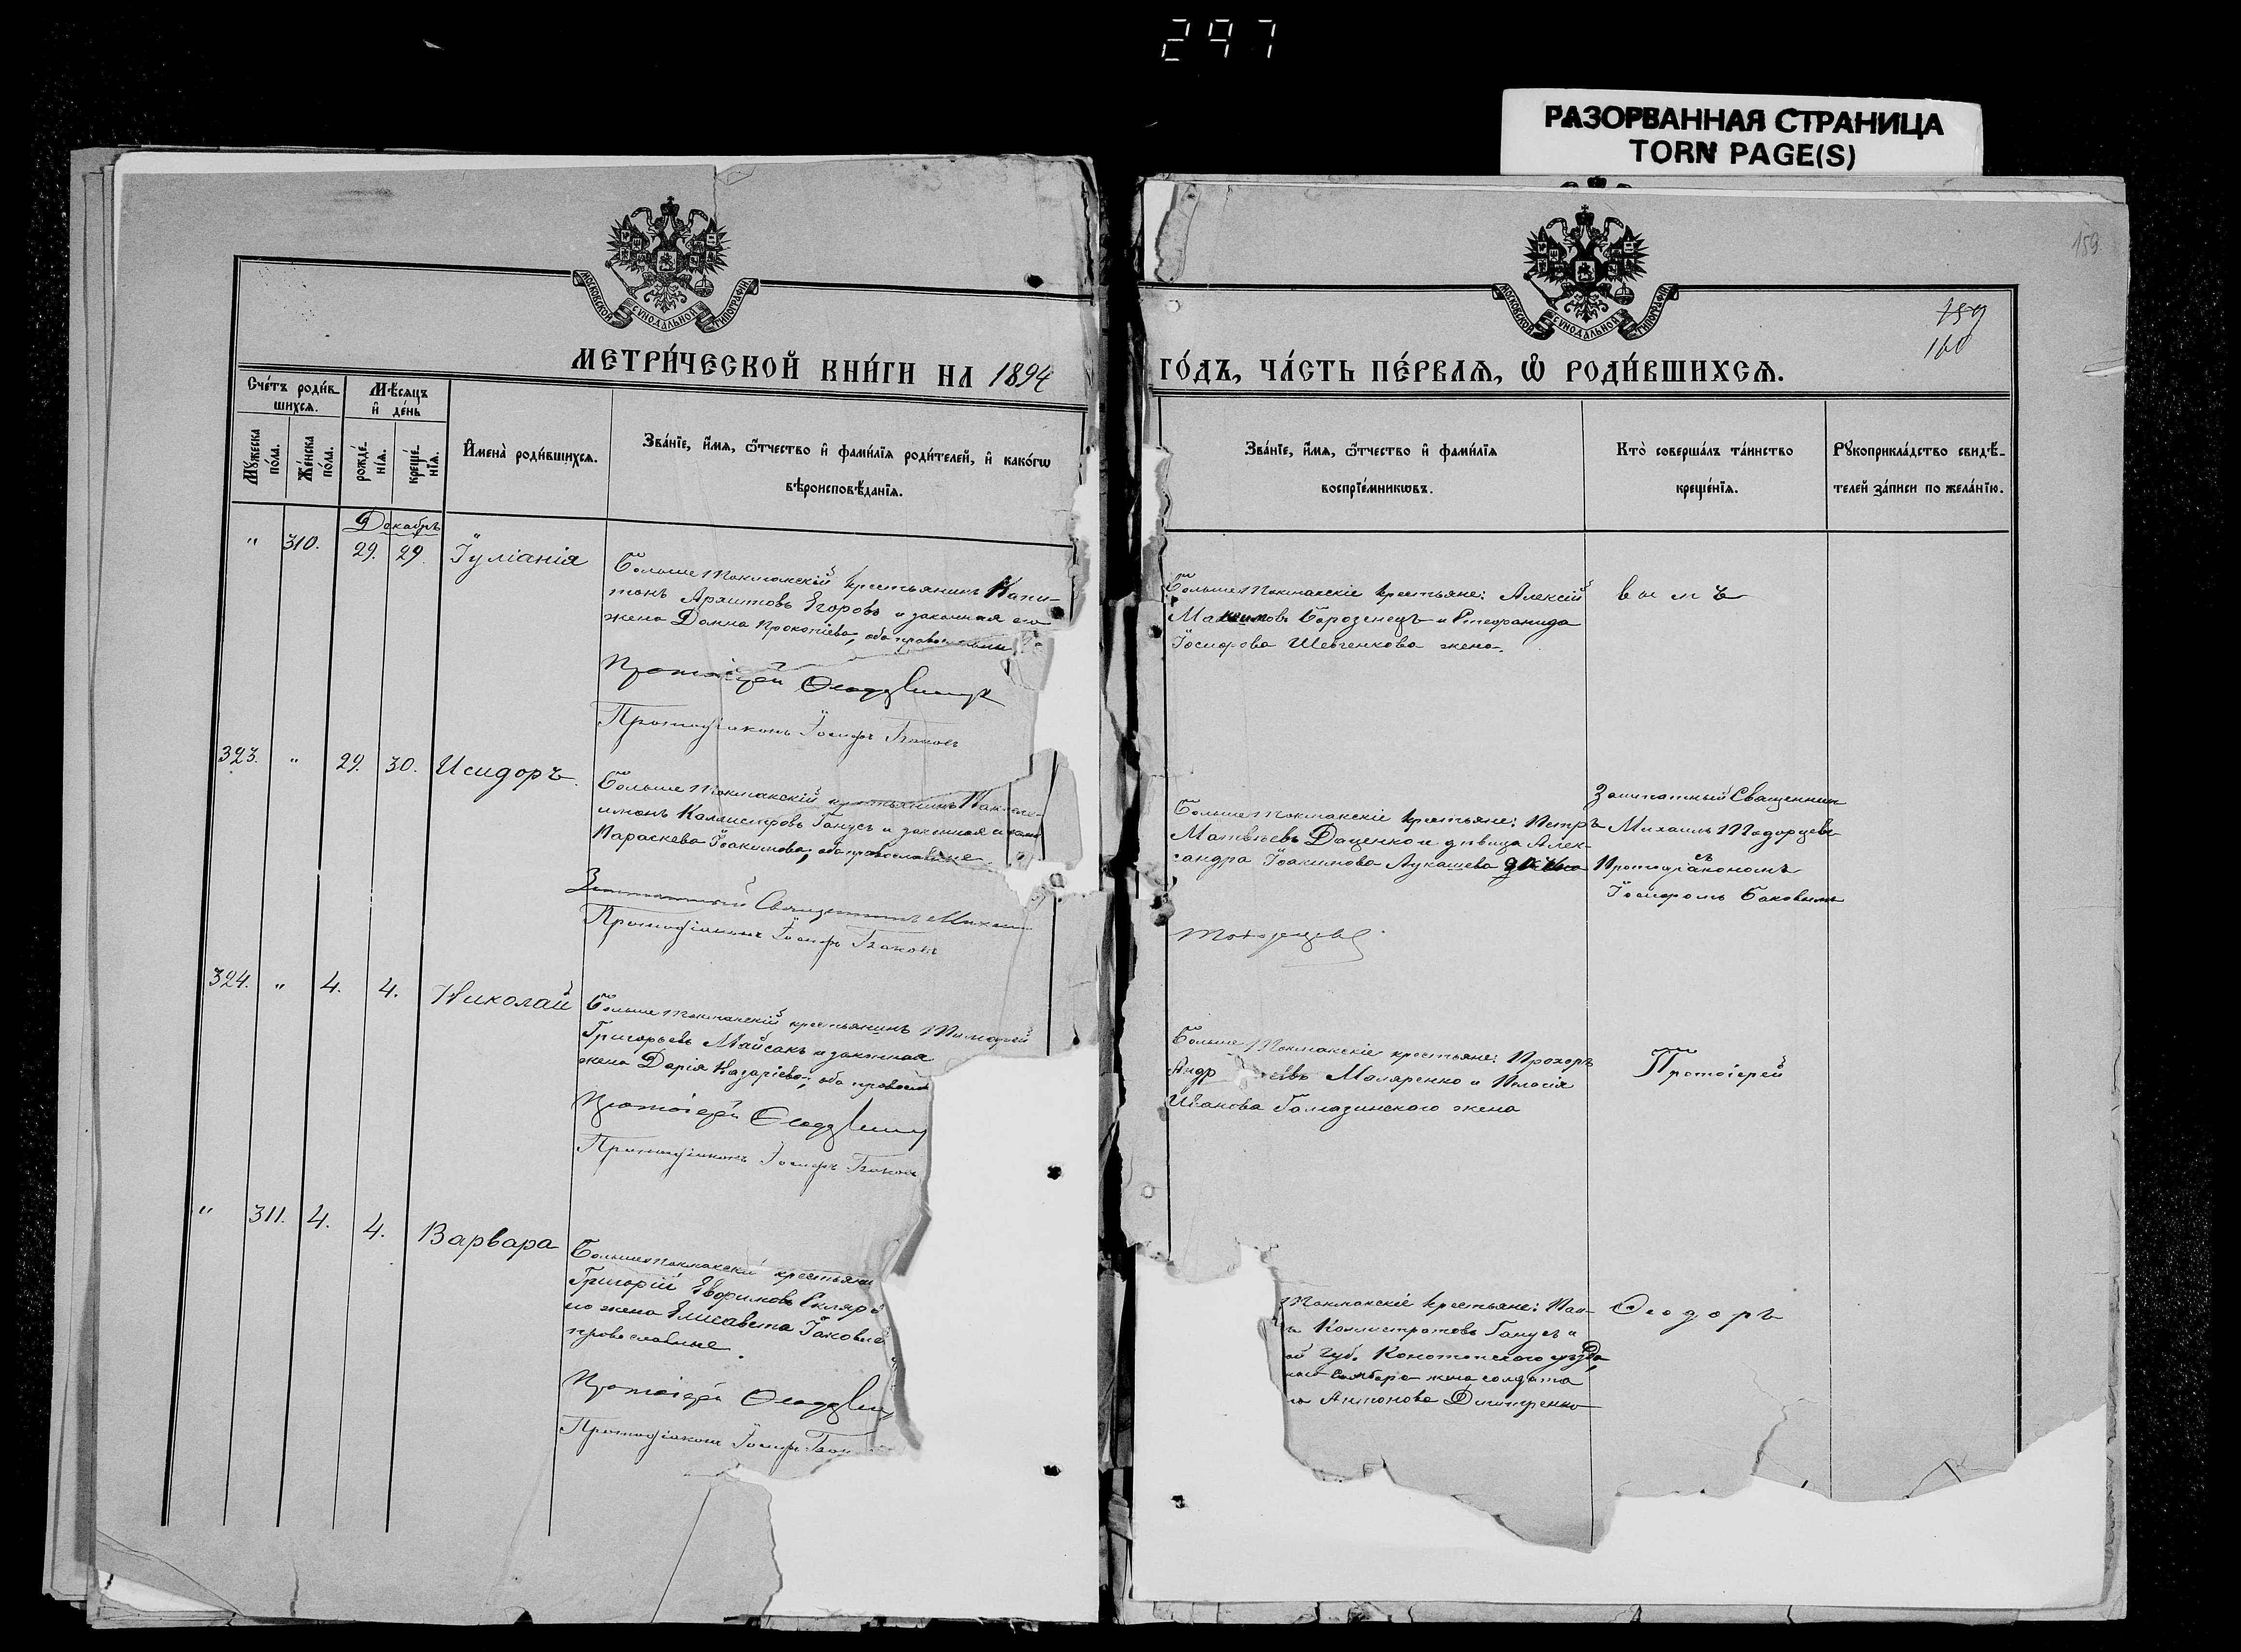 297
РАЗОРВАННАЯ СТРАНИЦА
TORN PAGE(S)
159.
159
160
МОСКОВСКОЙ СѴНОДАЛЬНОЙ ТИПОГРАФІИ
МОСКОВСКОЙ СѴНОДАЛЬНОЙ ТИПОГРАФІИ
МЕТРИ́ЧЕСКОЙ КНИ́ГИ НА 1894
ГО́ДЪ, ЧА́СТЬ ПЕ́РВАЯ, Ѡ РОДИ́ВШИХСЯ.
Сче́тъ роди́в-
шихся.
Мѣ́сяцъ
и҆ де́нь
Мꙋ́жеска
по́ла.
Же́нска
по́ла.
рожде́-
нїя.
креще́-
нїя.
И҆мена̀ роди́вшихся.
Зва́нїе, и҆́мя, ѻ҆́тчество и҆ фами́лїя роди́телей, и҆ како́гѡ
вѣроисповѣ́данїя.
Зва́нїе, и҆́мя, ѻ҆́тчество и҆ фами́лїя
воспрїе́мникѡвъ.
Кто̀ соверша́лъ та́инство
креще́нїя.
Рꙋкоприкла́дство свидѣ́-
телей за́писи по жела́нїю.
Декабрь
" 310. 29. 29 Іуліанія
Больше Токмакскій крестьянинъ Капи-
тонъ Архиповъ Егоровъ и законная его
жена Домна Прокопіева, оба православные
Протоіерей
Протодіаконъ Іосифъ Баковъ
Больше Токмакскіе крестьяне: Алексій
Максимовъ Борозенецъ и Стефанида
Іосифова Шевченкова жена.
вымъ
323. " 29. 30. Исидоръ
Больше Токмакскій крестьянинъ Пантеле-
имонъ Каллистровъ Ганусъ и законная жена
Параскева Іоакимова, оба православные
Заштатный Священникъ Михаилъ
Протодіаконъ Іосифъ Баковъ
Больше Токмакскіе крестьяне: Петръ
Матвѣевъ Даценко и дѣвица Алек-
сандра Іоакимова Лукашева
Заштатный Священникъ
Михаилъ Тодорцевъ
съ
Протодіакономъ
Іосифомъ Баковымъ
Тодорцевъ
324. " 4. 4. Николай
Больше Токмакскій крестьянинъ Тимофей
Григорьевъ Майсакъ и законная
жена Дарія Назаріева, оба правосл
Протоіерей
Протодіаконъ Іосифъ Баков
Больше Токмакскіе крестьяне: Прохоръ
Андр евъ Маляренко и Пелагія
Иванова Гамазинскаго жена
Протоіерей
" 311. 4. 4. Варвара
Больше Токмакскій крестьяни
Григорій Евфимовъ Скляръ
его жена Елисавета Іаковле
православные.
Протоіерей
Протодіаконъ Іосифъ Бак
Токмакскіе крестьяне: Пан-
ъ Каллистратовъ Ганусъ и
ой губ. Конотопскаго уѣзда
жена солдата
Антонова Дмитренко
Ѳеодоръ